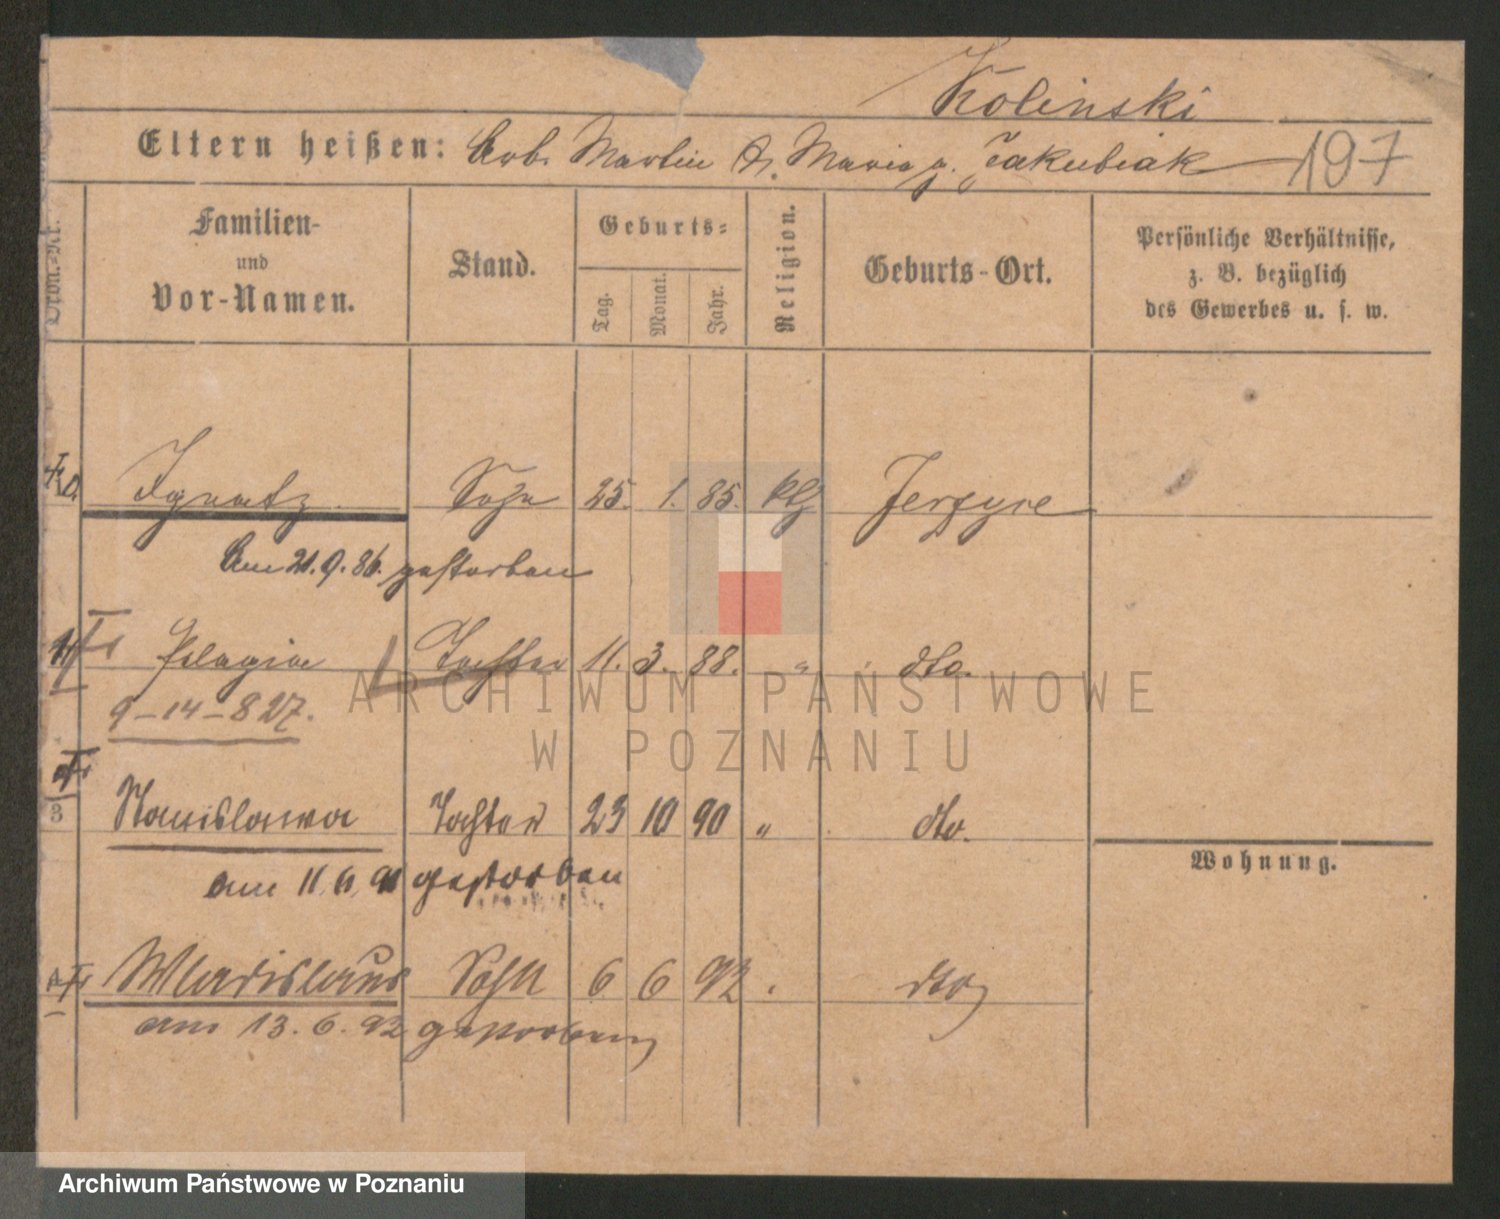 Kolinski
Eltern heißen: Arb. Martin & Maria g. Jakubiak 197
Ordn.-Nr.
Familien-
und
Vor-Namen.
Stand.
Geburts-
Tag.
Monat.
Jahr.
Religion.
Geburts-Ort.
Persönliche Verhältnisse,
z. B. bezüglich
des Gewerbes u. s. w.
Ignatz Sohn 25. 1. 85. klg Jerzyce
Am 21.9.86. gestorben
Pelagia Tochter 11. 3. 88. " dto.
9-14-827.
3 Stanislawa Tochter 23 10 90 " dto.
am 11.6.91 gestorben
Wohnung.
Wladislaus Sohn 6 6 92 dto
am 13.6.92 gestorben
ARCHIWUM PAŃSTWOWE
W POZNANIU
Archiwum Państwowe w Poznaniu